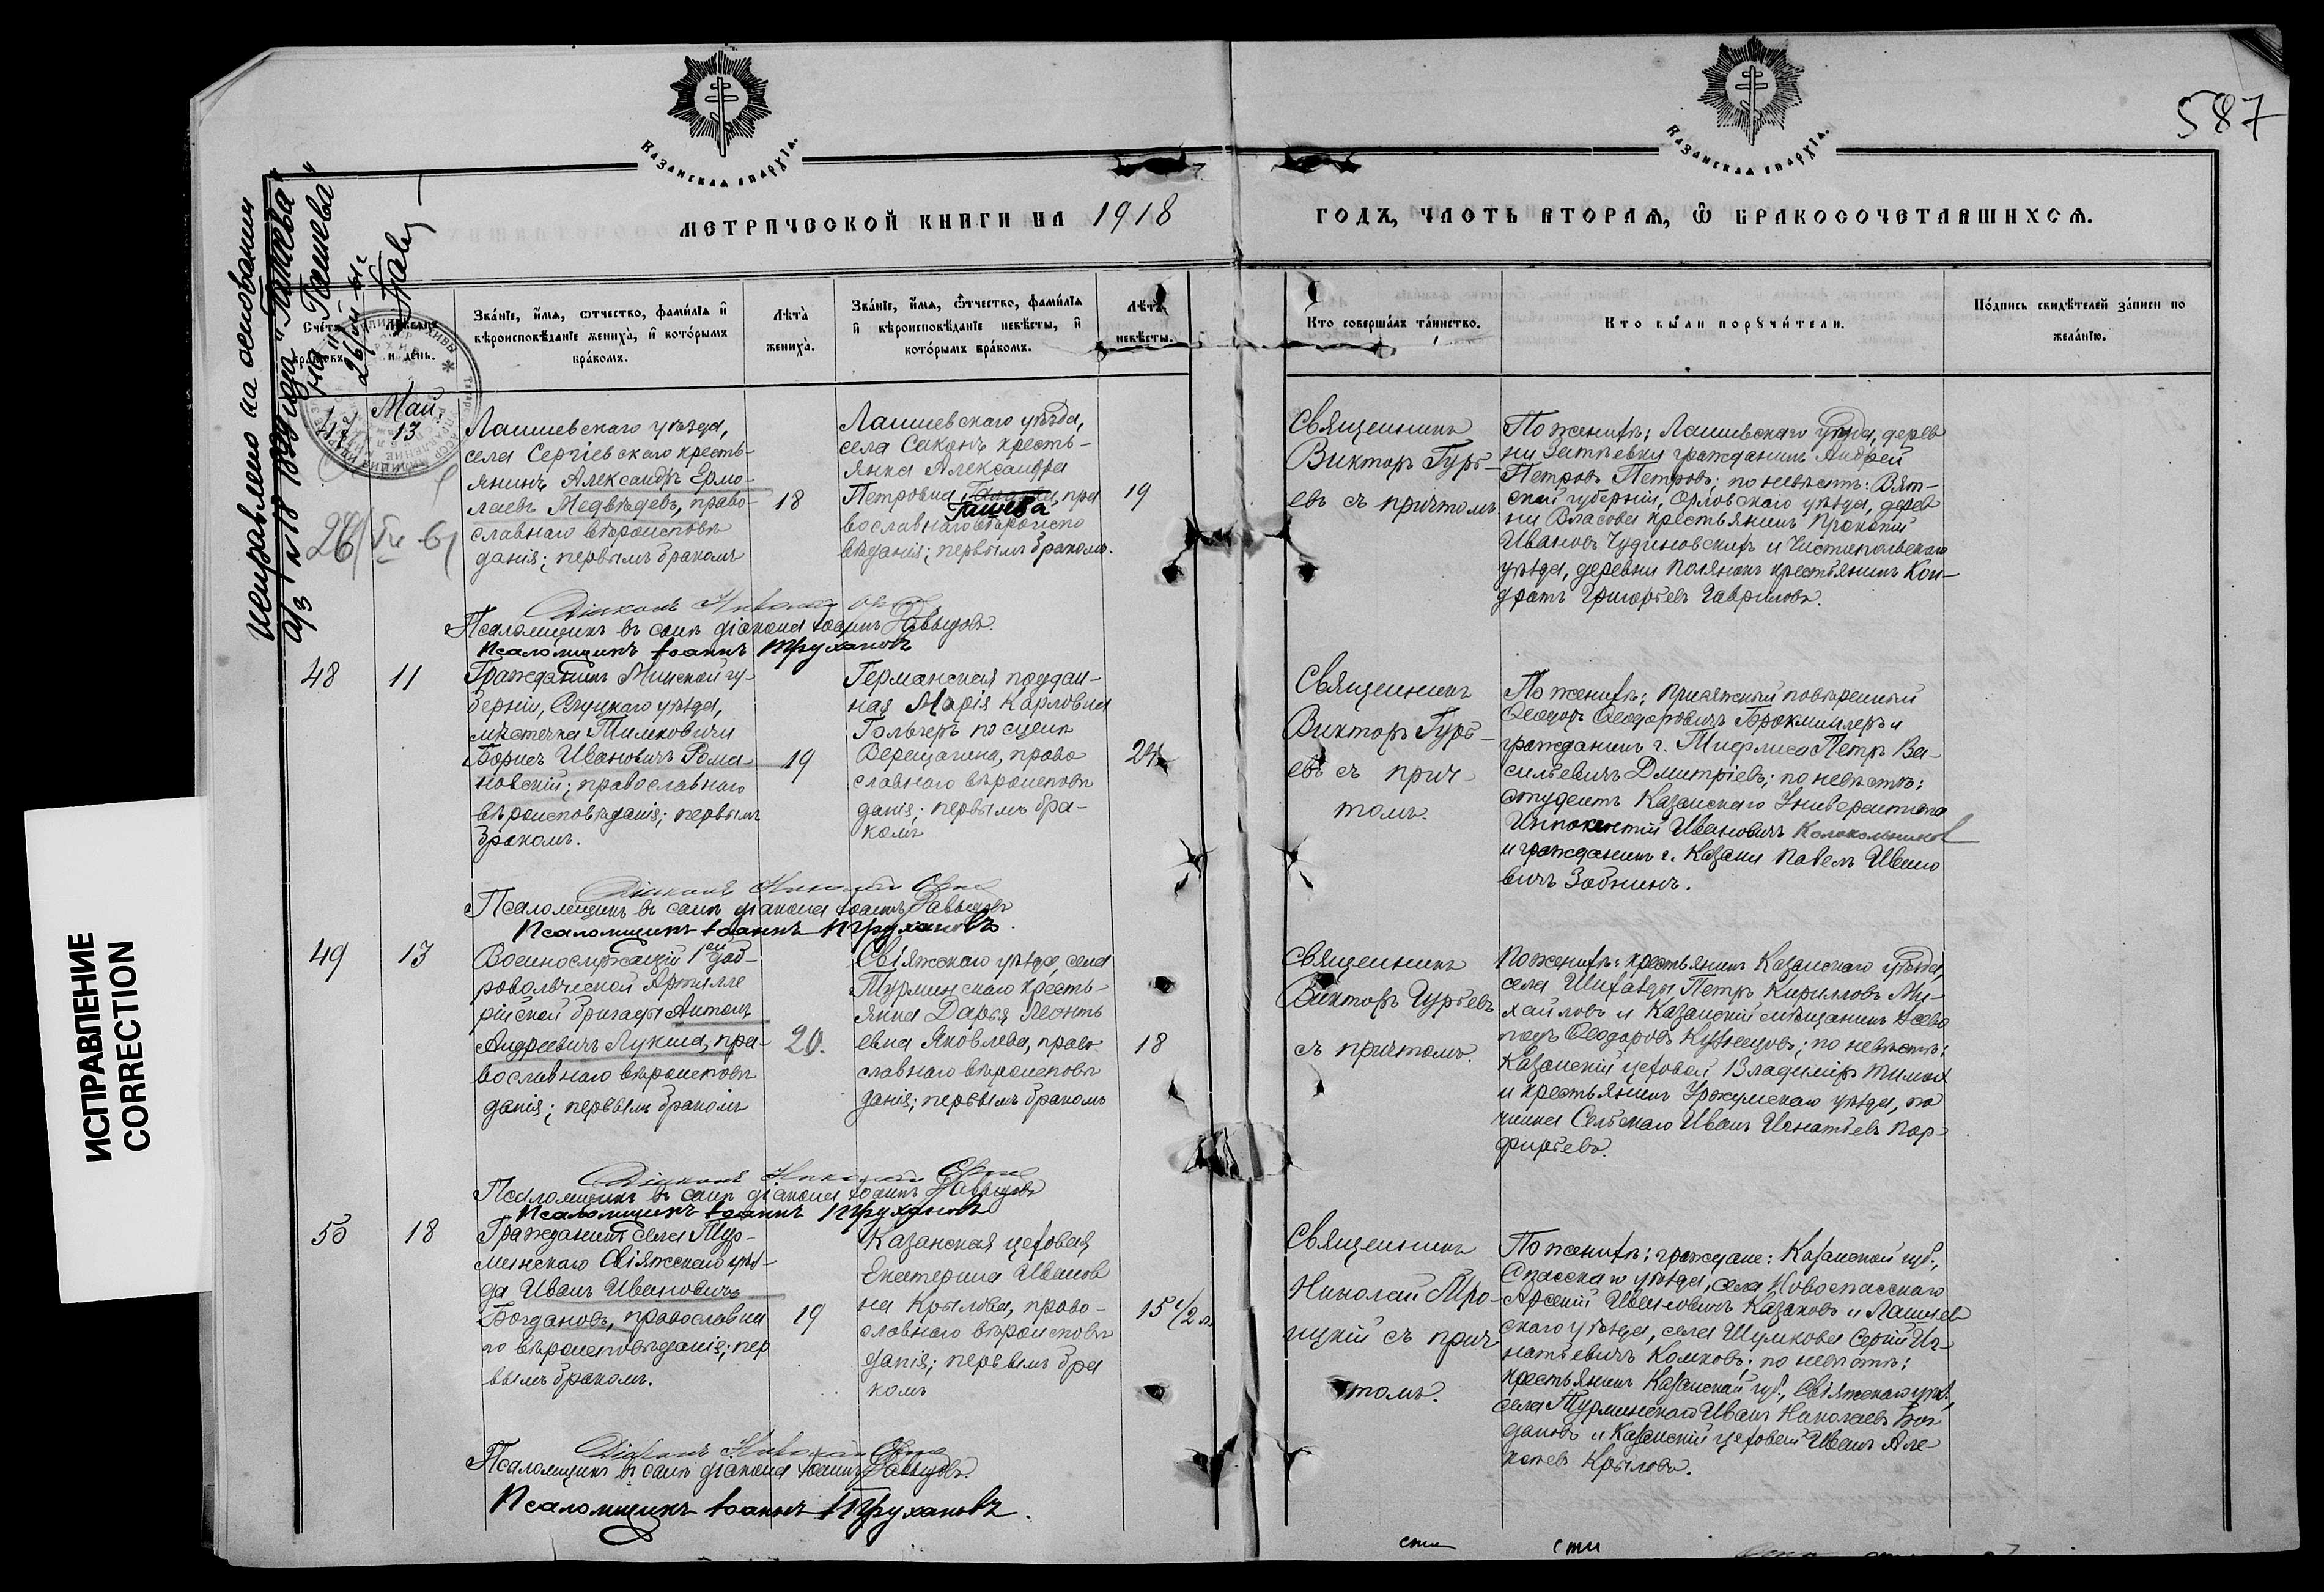 587
Казанская епархїа.
Казанская епархїа.
МЕТРИЧЕСКОЙ КНИГИ НА 1918
ГОДЪ, ЧАСТЬ ВТОРАЯ, Ѽ БРАКОСОЧЕТАВШИХСЯ.
исправлено на основании
а/з № 18 1882 года
на "Гашева"
Счетъ браковъ.
и день.
Званїе, имя, отчество, фамилїя и
вѣроисповѣданїе жениха, и которымъ
бракомъ.
Лѣта
жениха.
Званїе, имя, ѿтчество, фамилїя
и вѣроисповѣданїе невѣсты, и
которымъ бракомъ.
Лѣта
невѣсты.
Кто совершалъ таинство.
Кто были поручители.
Подпись свидѣтелей записи по
желанїю.
47
Май.
13
Лаишевскаго уѣзда,
села Сергіевскаго кресть-
янинъ Александръ Ермо-
лаевъ Медвѣдевъ, право-
славнаго вѣроисповѣ
данія; первымъ бракомъ
18
Лаишевскаго уѣзда,
села Саконъ кресть-
янка Александра
Петровна пра
Гашева
вославнаго вѣроиспо
вѣданія; первымъ бракомъ.
19
Священникъ
Викторъ Гурь-
евъ съ причтомъ
По женихѣ: Лаишевскаго уѣзда, дерев
ни Затѣевки гражданинъ Андрей
Петровъ Петровъ; по невѣстѣ: Вят-
ской губерніи, Орловскаго уѣзда, дерев
ни Власова крестьянинъ Прокопій
Ивановъ Чудиновскихъ и Чистопольскаго
уѣзда, деревни Полянокъ крестьянинъ Кон-
дратъ Григорьевъ Гавриловъ.
Діаконъ Николай
Псаломщикъ въ санѣ діакона Іоаннъ Давыдовъ.
Псаломщикъ Іоаннъ Трухановъ
48
11
Гражданинъ Минской гу-
берніи, Слуцкаго уѣзда,
мѣстечка Тимковичи
Борисъ Ивановичъ Рома-
новскій; православнаго
вѣроисповѣданія; первымъ
бракомъ.
19
Германская поддан-
ная Марія Карловна
Гольгеръ по сценѣ
Верещагина, право
славнаго вѣроисповѣ
данія; первымъ бра-
комъ
24
Священникъ
Викторъ Гурь-
евъ съ прич-
томъ.
По женихѣ: Присяжный повѣренный
Ѳеодоръ Ѳеодоровичъ Брокмиллеръ и
гражданинъ г. Тифлиса Петръ Ва-
сильевичъ Дмитріевъ; по невѣстѣ:
студентъ Казанскаго Университета
Иннокентій Ивановичъ Колокольников
и гражданинъ г. Казани Павелъ Ивано
вичъ Забнинъ.
Діаконъ Николай
Псаломщикъ въ санѣ діакона Іоаннъ Давыдовъ
Псаломщикъ Іоаннъ Трухановъ.
49
13
Военнослужащій 1ой доб-
ровольческой Артилле
рійской бригады Антонъ
Андреевичъ Лукша, пра-
вославнаго вѣроисповѣ
данія; первымъ бракомъ
20.
Свіяжскаго уѣзда, села
Турминскаго кресть-
янка Дарья Леонть
евна Яковлева, право-
славнаго вѣроисповѣ
данія; первымъ бракомъ
18
Священникъ
Викторъ Гурьевъ
съ причтомъ.
По женихѣ: крестьянинъ Казанскаго уѣзда,
села Шигазды Петръ Кирилловъ Ми-
хайловъ и Казанскій мѣщанинъ Всево
лодъ Ѳеодоровъ Кузнецовъ; по невѣстѣ:
Казанскій цеховой Владиміръ
и крестьянинъ Уржумскаго уѣзда, по
чинка Сельскаго Иванъ Игнатьевъ Пор-
фирьевъ.
Діаконъ Николай
Псаломщикъ въ санѣ діакона Іоаннъ Давыдовъ
Псаломщикъ Іоаннъ Трухановъ
50
18
Гражданинъ села Тур-
минскаго Свіяжскаго уѣз-
да Иванъ Ивановичъ
Богдановъ, православна
го вѣроисповѣданія; пер
вымъ бракомъ.
19
Казанская цеховая
Екатерина Иванов
на Крылова, право-
славнаго вѣроисповѣ
данія; первымъ бра
комъ
15 1/2 л.
Священникъ
Николай Тро-
ицкій съ прич
томъ.
По женихѣ: граждане: Казанской губ.,
Спасскаго уѣзда, села Новоспасскаго
Арсеній Ивановичъ Казаковъ и Лаишев
скаго уѣзда, села Шумкова Сергій Иг-
натьевичъ Комковъ; по невѣстѣ:
крестьянинъ Казанской губ., Свіяжскаго уѣз.,
села Турминскаго Иванъ Николаевъ Бог
дановъ и Казанскій цеховой Иванъ Але
ксѣевъ Крыловъ.
Діаконъ Николай
Псаломщикъ въ санѣ діакона Іоаннъ Давыдовъ.
Псаломщикъ Іоаннъ Трухановъ.
ИСПРАВЛЕНИЕ
CORRECTION